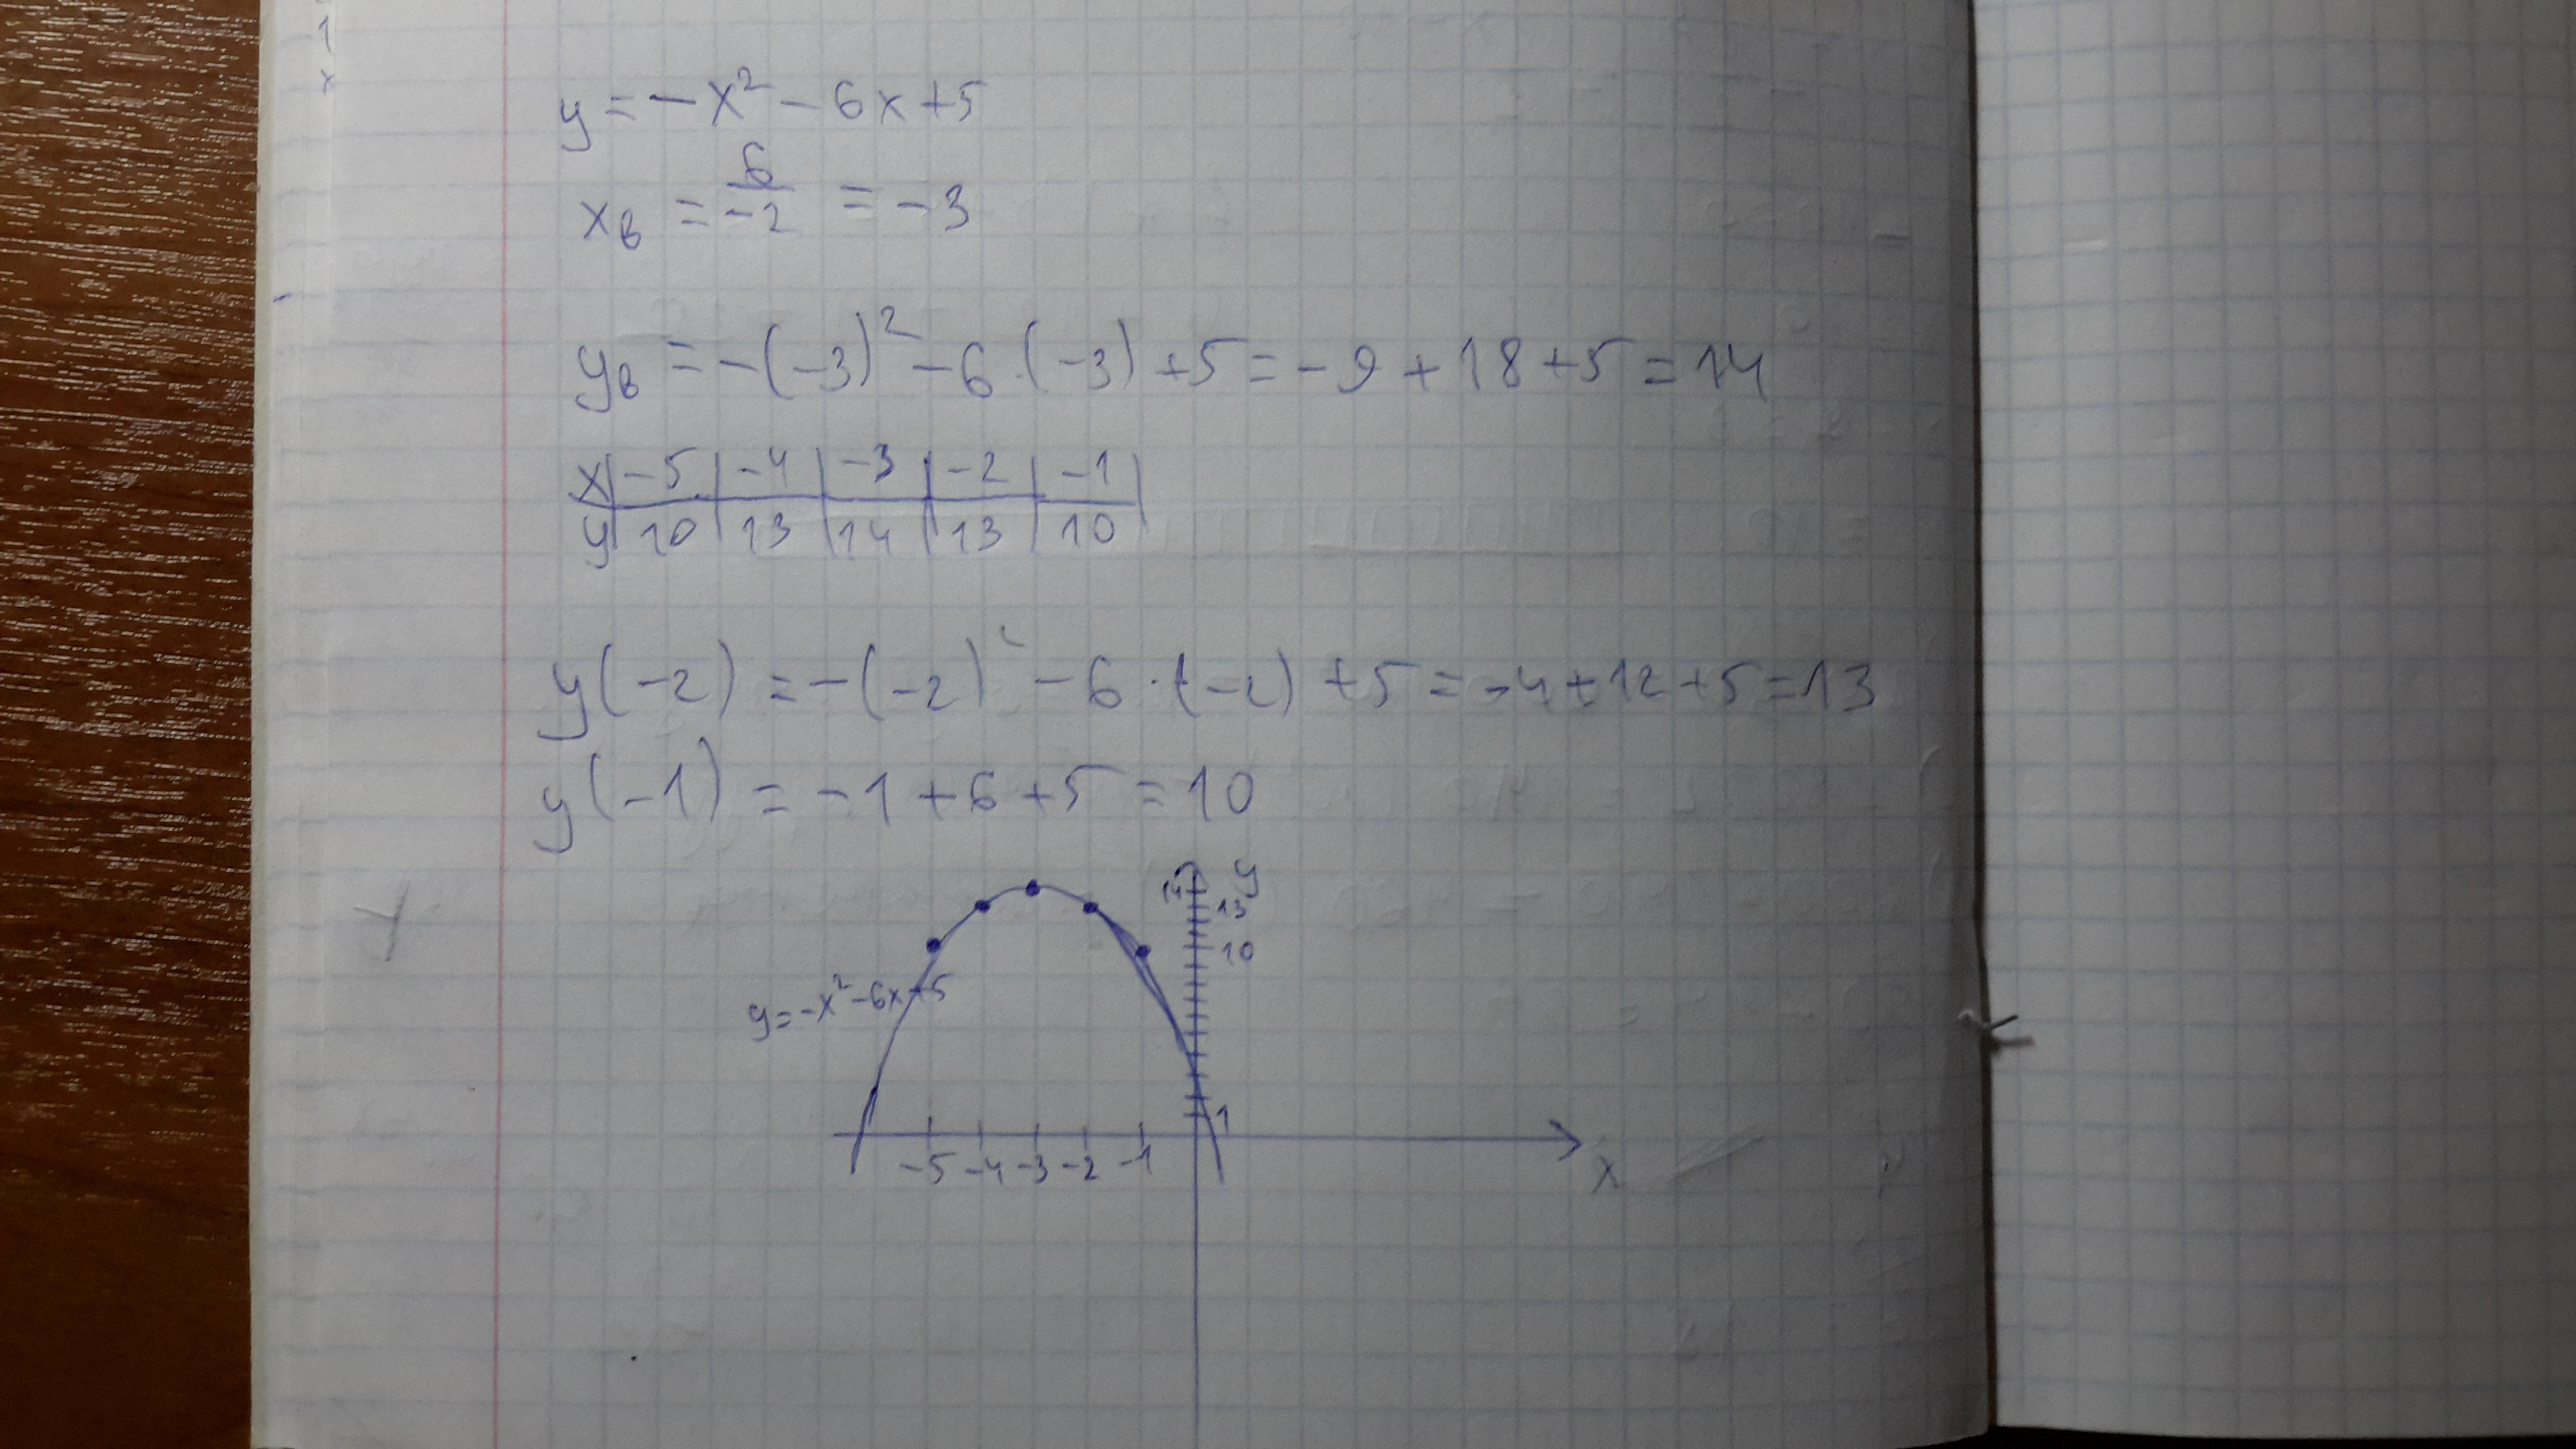 1
x
y = -x² - 6x + 5
xв = 6/-2 = -3
yв = -(-3)² - 6·(-3) + 5 = -9 + 18 + 5 = 14
x | -5 | -4 | -3 | -2 | -1 |
y | 10 | 13 | 14 | 13 | 10
y(-2) = -(-2)² - 6·(-2) + 5 = -4 + 12 + 5 = 13
y(-1) = -1 + 6 + 5 = 10
14 y
13
10
y = -x² - 6x + 5
1
-5 -4 -3 -2 -1
x